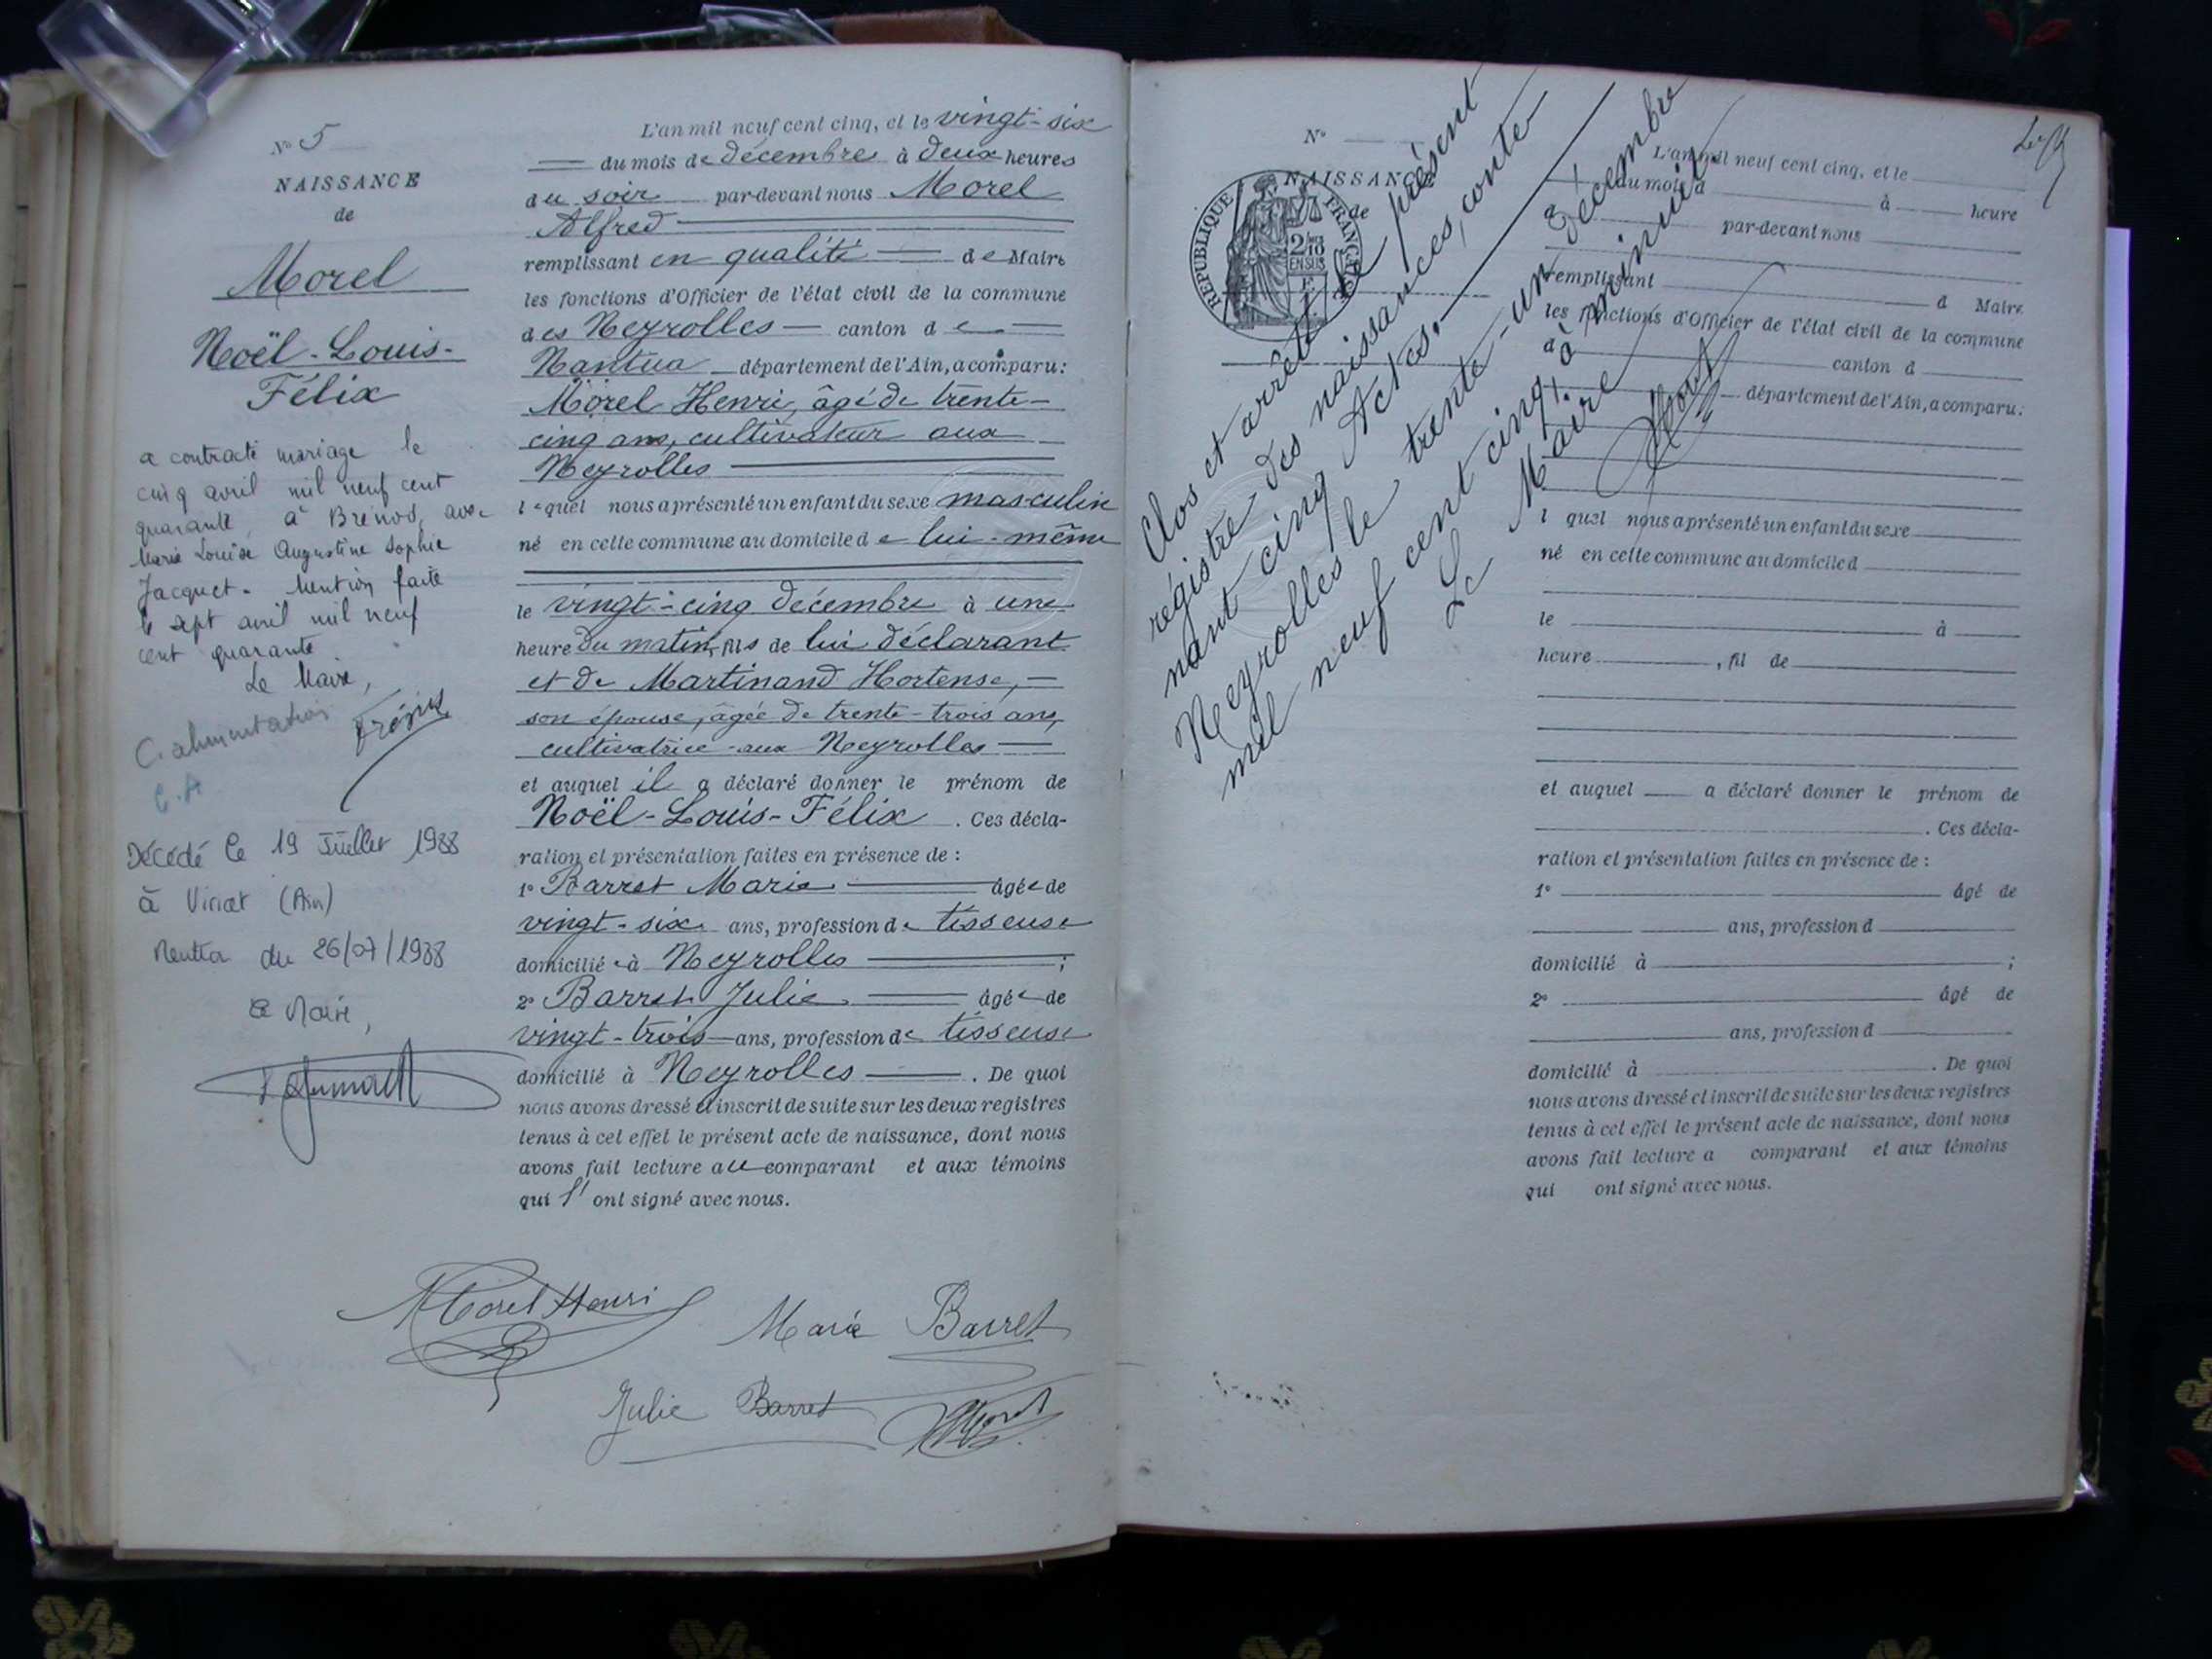 N° 5
NAISSANCE
de
Morel
Noël-Louis-
Félix
a contracté mariage le
cinq avril mil neuf cent
quarante, à Brénod, avec
Marie Louise Augustine Sophie
Jacquet. Mention faite
le sept avril mil neuf
cent quarante
Le Maire,
C. alimentation
C.A
Décédé le 19 Juillet 1988
à Viriat (Ain)
Mention du 26/07/1988
Le Maire,
L'an mil neuf cent cinq, et le vingt-six
du mois de décembre à deux heures
du soir par-devant nous Morel
Alfred
remplissant en qualité de Maire
les fonctions d'Officier de l'état civil de la commune
des Neyrolles canton de
Nantua département de l'Ain, a comparu:
Morel Henri, âgé de trente-
cinq ans, cultivateur aux
Neyrolles
lequel nous a présenté un enfant du sexe masculin
né en cette commune au domicile de lui-même
le vingt-cinq décembre à une
heure du matin, fils de lui déclarant
et de Martinand Hortense,
son épouse, âgée de trente-trois ans,
cultivatrice aux Neyrolles
et auquel il a déclaré donner le prénom de
Noël-Louis-Félix. Ces décla-
ration et présentation faites en présence de :
1° Barret Marie âgée de
vingt-six ans, profession de tisseuse
domiciliée à Neyrolles ;
2° Barret Julie âgée de
vingt-trois ans, profession de tisseuse
domicilié à Neyrolles. De quoi
nous avons dressé et inscrit de suite sur les deux registres
tenus à cet effet le présent acte de naissance, dont nous
avons fait lecture au comparant et aux témoins
qui l'ont signé avec nous.
Morel Henri
Marie Barret
Julie Barret
Morel
N°
NAISSANCE
de
REPUBLIQUE FRANÇAISE
2/10
EN SUS
Clos et arrêté le présent
registre des naissances, conte-
nant cinq Actes.
Neyrolles le trente-un Décembre
mil neuf cent cinq, à minuit
Le Maire
L'an mil neuf cent cinq, et le
du mois d à heure
d par-devant nous
remplissant d Maire
les fonctions d'Officier de l'état civil de la commune
d canton d
département de l'Ain, a comparu:
l quel nous a présenté un enfant du sexe
né en cette commune au domicile d
le à
heure , fil de
et auquel a déclaré donner le prénom de
. Ces décla-
ration et présentation faites en présence de :
1° âgé de
ans, profession d
domicilié à ;
2° âgé de
ans, profession d
domicilié à . De quoi
nous avons dressé et inscrit de suite sur les deux registres
tenus à cet effet le présent acte de naissance, dont nous
avons fait lecture a comparant et aux témoins
qui ont signé avec nous.